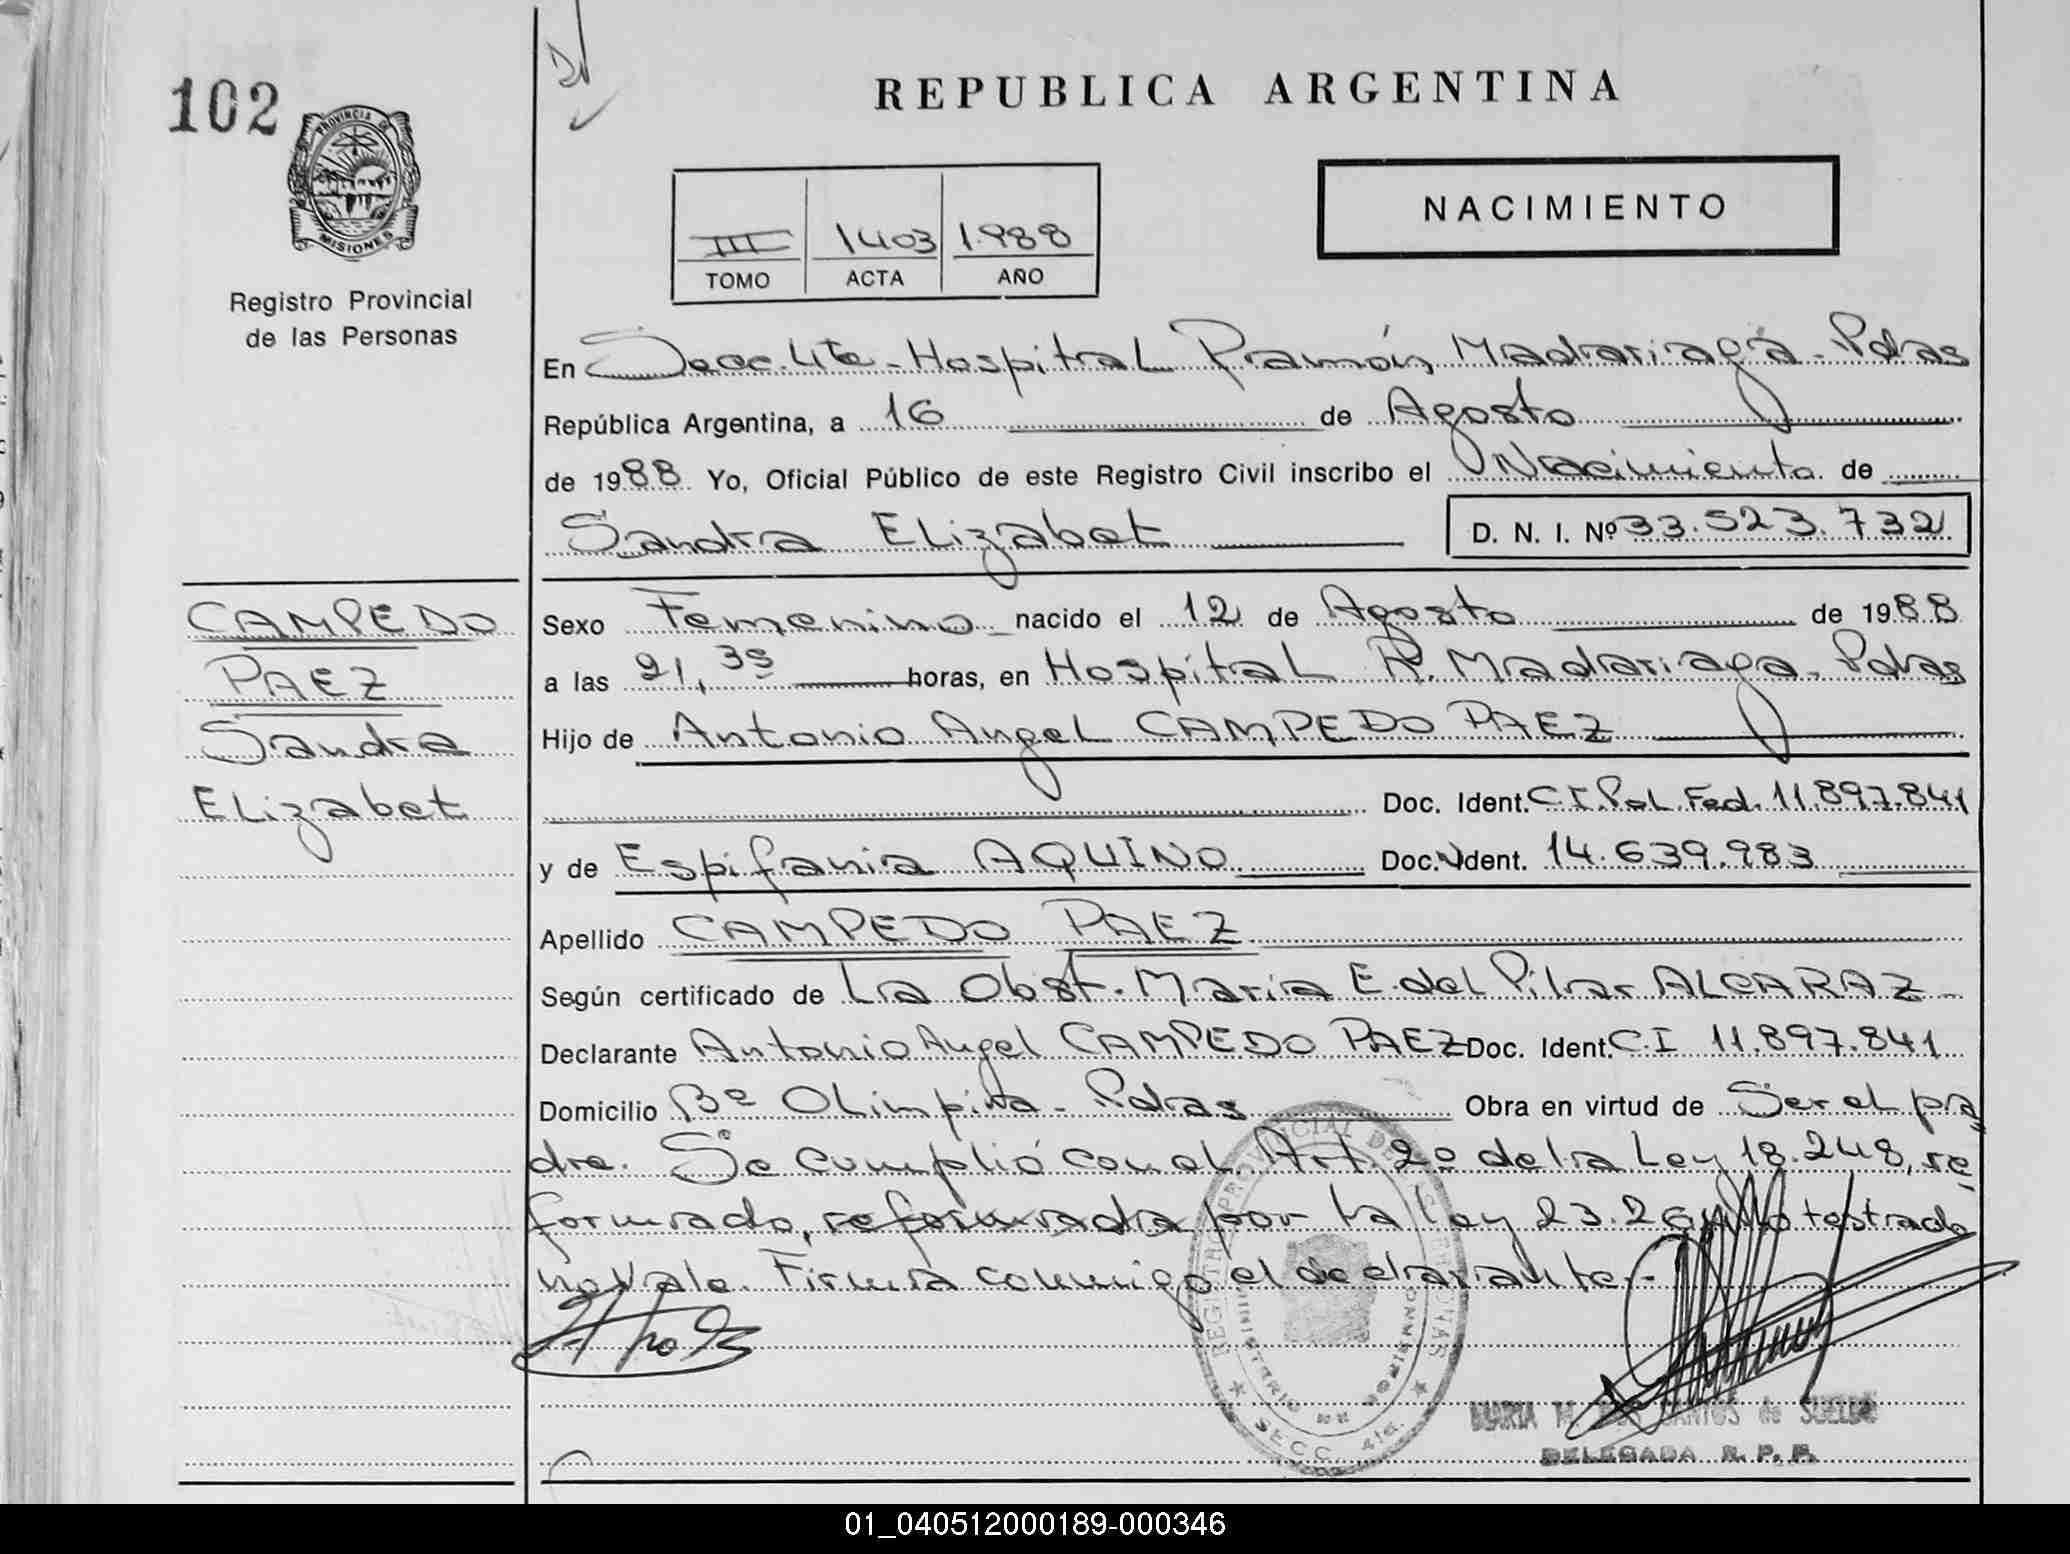 102
PROVINCIA DE
MISIONES
Registro Provincial
de las Personas
REPUBLICA ARGENTINA
NACIMIENTO
III 1403 1.988
TOMO ACTA AÑO
En Secc. 4ta - Hospital Ramón Madariaga - Pdas
República Argentina, a 16 de Agosto
de 1988 Yo, Oficial Público de este Registro Civil inscribo el Nacimiento de
Sandra Elizabet D. N. I. Nº 33.523.732
CAMPEDO
PAEZ
Sandra
Elizabet
Sexo Femenino nacido el 12 de Agosto de 1988
a las 21,35 horas, en Hospital R. Madariaga - Pdas
Hijo de Antonio Angel CAMPEDO PAEZ
Doc. Ident. C I. Pol. Fed. 11.897.841
y de Espifania AQUINO Doc. Ident. 14.639.983
Apellido CAMPEDO PAEZ
Según certificado de La Obst. Maria E. del Pilar ALCARAZ
Declarante Antonio Angel CAMPEDO PAEZ Doc. Ident. C.I 11.897.841
Domicilio Bº Olimpita - Pdas Obra en virtud de Ser el pa
dre. Se cumplió con el Art. 2º de la Ley 18.248, re
formado, reformada por la Ley 23.2 testado
no Vale. Firma conmigo el declarante.-
REGISTRO PROVINCIAL DE LAS PERSONAS
MINISTERIO DE GOBIERNO
SECC. 4ta.
MARIA M. DOS SANTOS de SUELDO
DELEGADA R. P. P.
01_040512000189-000346